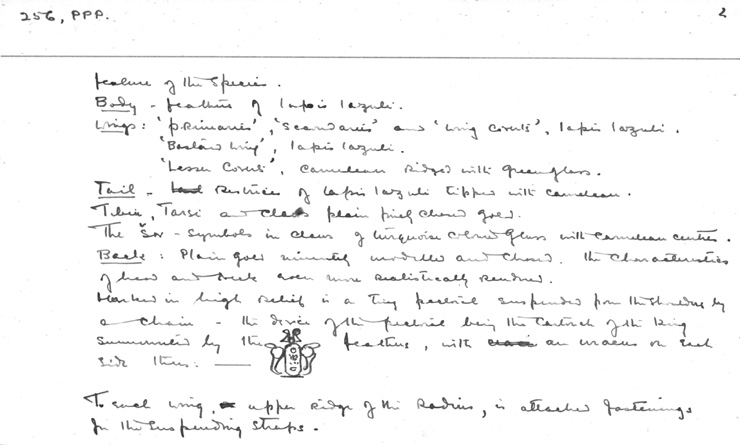 256, PPP.
2
feature of the Species.
Body - feathers of lapis lazuli.
Wings: 'primaries', 'secondaries' and 'wing coverts', lapis lazuli.
'Bastard wing', lapis lazuli.
'Lesser Coverts', carnelian ridged with green glass.
Tail - Rectrices of lapis lazuli tipped with carnelian.
Tibia, Tarsi and claws plain finely chased gold.
The Šn - symbols in claws of turquoise colored glass with carnelian centres.
Back: Plain gold minutely modelled and chased. The characteristics
of head and neck even more realistically rendered.
Marked in high relief is a tiny pectoral suspended from the shoulders by
a chain - the device of the pectoral being the Cartouch of the King
surmounted by the feathers, with an uraeus on each
side thus: —
To each wing, upper ridge of the Radius, is attached fastenings
for the suspending straps.